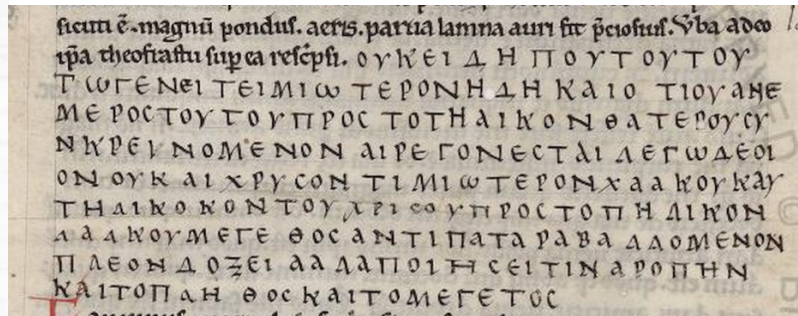 sicuti ē. magnū pondus. aeris. parua lamna auri fit p̄ciosius. Vba adeo
ip̄a theofrastu sup ea rescͥpsi. ΟΥΚΕΙ ΔΗ ΠΟΥΤΟΥΤΟΥ
ΤωΓΕΝΕΙ ΤΕΙΜΙω ΤΕΡΟΝΗΔΗ ΚΑΙΟ ΤΙΟΥΑΝΕ
ΜΕΡΟCΤΟΥΤΟΥΠΡΟC ΤΟΤΗΑΙΚΟΝΘΑΤΕΡΟΥCΥ
ΝΚΡΕΙΝΟΜΕΝΟΝ ΑΙΡΕΓΟΝΕCΤΑΙ ΛΕΓωΔΕΟΙ
ΟΝΟΥΚΑΙΧΡΥCΟΝΤΙΜΙωΤΕΡΟΝΧΑΑΚΟΥΚΑΥ
ΤΗΛΙΚΟΚΟΝΤΟΥΧΡΙCΟΥΠΡΟCΤΟΠΗΛΙΚΟΝ
ΛΑΛΚΟΥΜΕΓΕΘΟCΑΝΤΙΠΑΤΑΡΑΒΑΛΛΟΜΕΝΟΝ
ΠΛΕΟΝΔΟΞΕΙΑΑΛΑΠΟΙΗCΕΙΤΙΝΑΡΟΠΗΝ
ΚΑΙΤΟΠΛΗΘΟCΚΑΙΤΟΜΕΓΕΤΟC